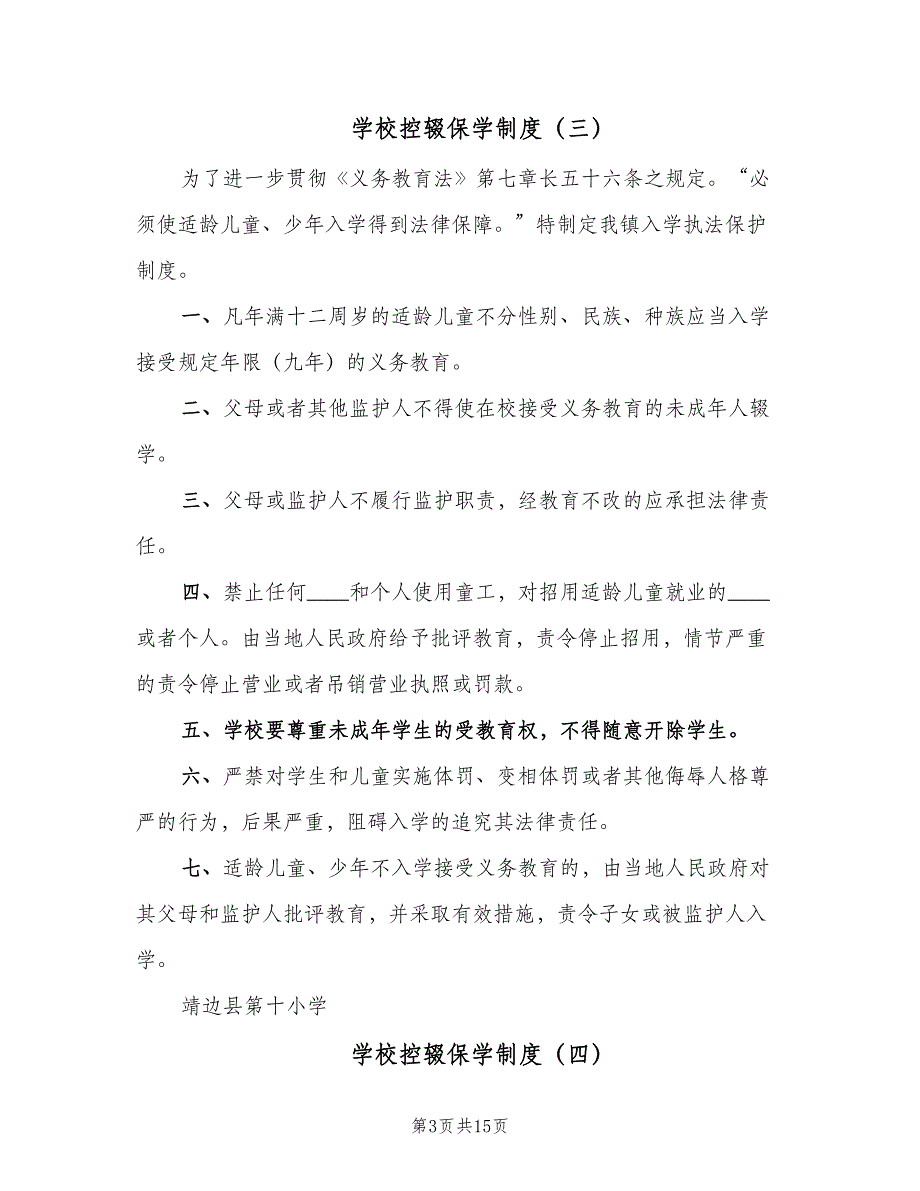 学校控辍保学制度（三）
为了进一步贯彻《义务教育法》第七章长五十六条之规定。“必
须使适龄儿童、少年入学得到法律保障。”特制定我镇入学执法保护
制度。
一、凡年满十二周岁的适龄儿童不分性别、民族、种族应当入学
接受规定年限（九年）的义务教育。
二、父母或者其他监护人不得使在校接受义务教育的未成年人辍
学。
三、父母或监护人不履行监护职责，经教育不改的应承担法律责
任。
四、禁止任何____和个人使用童工，对招用适龄儿童就业的____
或者个人。由当地人民政府给予批评教育，责令停止招用，情节严重
的责令停止营业或者吊销营业执照或罚款。
五、学校要尊重未成年学生的受教育权，不得随意开除学生。
六、严禁对学生和儿童实施体罚、变相体罚或者其他侮辱人格尊
严的行为，后果严重，阻碍入学的追究其法律责任。
七、适龄儿童、少年不入学接受义务教育的，由当地人民政府对
其父母和监护人批评教育，并采取有效措施，责令子女或被监护人入
学。
靖边县第十小学
学校控辍保学制度（四）
第3页共15页